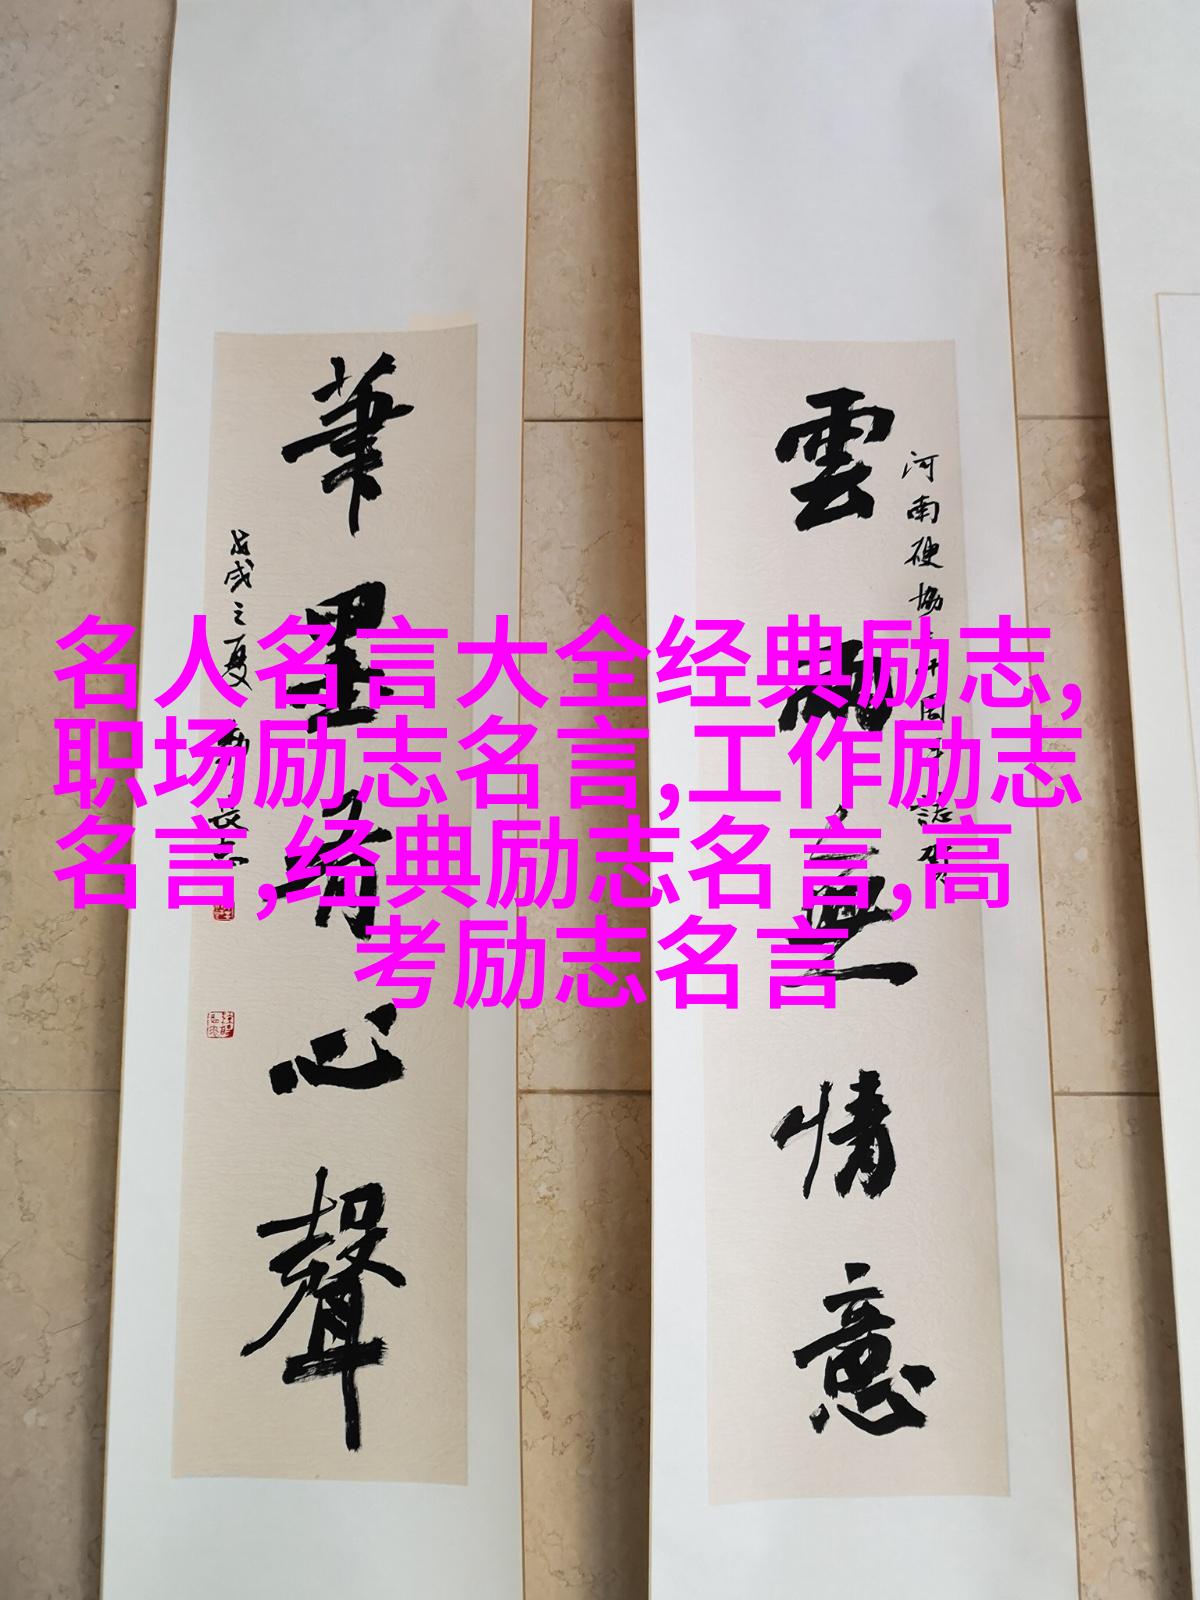 雲風無情意
河南硬協
筆墨有心聲
戊戌之夏
名人名言大全经典励志,
职场励志名言,工作励志
名言,经典励志名言,高
考励志名言